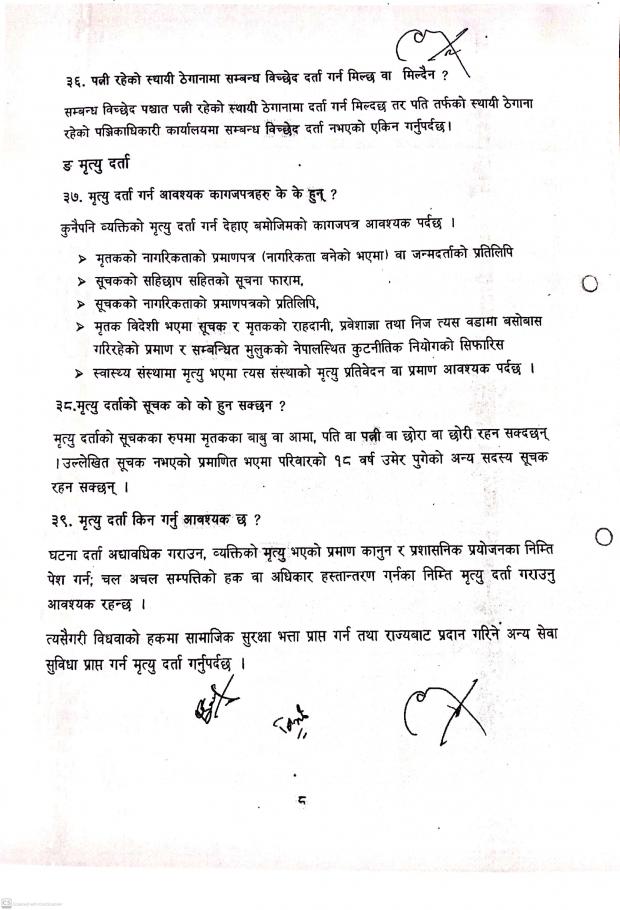 ३६. पत्नी रहेको स्थायी ठेगानामा सम्बन्ध विच्छेद दर्ता गर्न मिल्छ वा मिल्दैन ?
सम्बन्ध विच्छेद पश्चात पत्नी रहेको स्थायी ठेगानामा दर्ता गर्न मिल्दछ तर पति तर्फको स्थायी ठेगाना
रहेको पञ्जिकाधिकारी कार्यालयमा सम्बन्ध विच्छेद दर्ता नभएको एकिन गर्नुपर्दछ।
ङ मृत्यु दर्ता
३७. मृत्यु दर्ता गर्न आवश्यक कागजपत्रहरु के के हुन् ?
कुनैपनि व्यक्तिको मृत्यु दर्ता गर्न देहाए बमोजिमको कागजपत्र आवश्यक पर्दछ ।
➢ मृतकको नागरिकताको प्रमाणपत्र (नागरिकता बनेको भएमा) वा जन्मदर्ताको प्रतिलिपि
➢ सूचकको सहिछाप सहितको सूचना फाराम,
➢ सूचकको नागरिकताको प्रमाणपत्रको प्रतिलिपि,
➢ मृतक विदेशी भएमा सूचक र मृतकको राहदानी, प्रवेशाज्ञा तथा निज त्यस वडामा बसोबास
गरिरहेको प्रमाण र सम्बन्धित मुलुकको नेपालस्थित कुटनीतिक नियोगको सिफारिस
➢ स्वास्थ्य संस्थामा मृत्यु भएमा त्यस संस्थाको मृत्यु प्रतिवेदन वा प्रमाण आवश्यक पर्दछ ।
३८.मृत्यु दर्ताको सूचक को को हुन सक्छन ?
मृत्यु दर्ताको सूचकका रुपमा मृतकका बाबु वा आमा, पति वा पत्नी वा छोरा वा छोरी रहन सक्दछन्
।उल्लेखित सूचक नभएको प्रमाणित भएमा परिवारको १८ वर्ष उमेर पुगेको अन्य सदस्य सूचक
रहन सक्छन् ।
३९. मृत्यु दर्ता किन गर्नु आवश्यक छ ?
घटना दर्ता अद्यावधिक गराउन, व्यक्तिको मृत्यु भएको प्रमाण कानुन र प्रशासनिक प्रयोजनका निम्ति
पेश गर्न; चल अचल सम्पत्तिको हक वा अधिकार हस्तान्तरण गर्नका निम्ति मृत्यु दर्ता गराउनु
आवश्यक रहन्छ ।
त्यसैगरी विधवाको हकमा सामाजिक सुरक्षा भत्ता प्राप्त गर्न तथा राज्यबाट प्रदान गरिने अन्य सेवा
सुविधा प्राप्त गर्न मृत्यु दर्ता गर्नुपर्दछ ।
८
CS Scanned with CamScanner